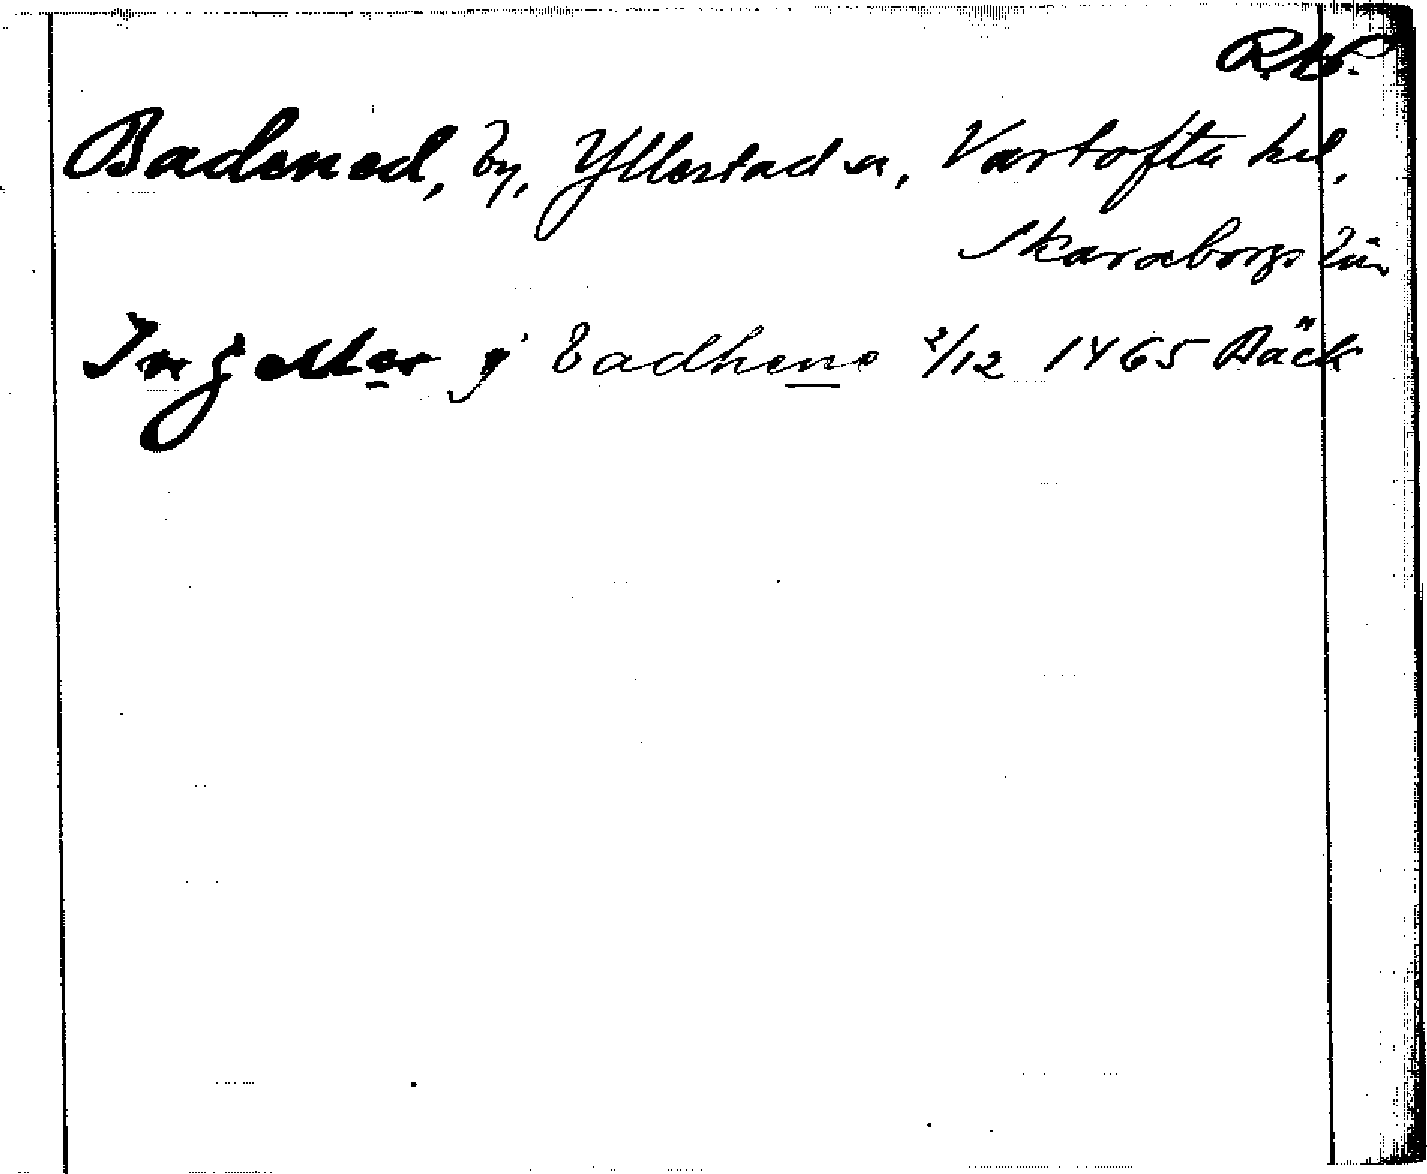 Badened, by, Yllestad sn, Vartofta hd,
Skaraborgs län
Ingeller j badhene 2/12 1465 Bäck